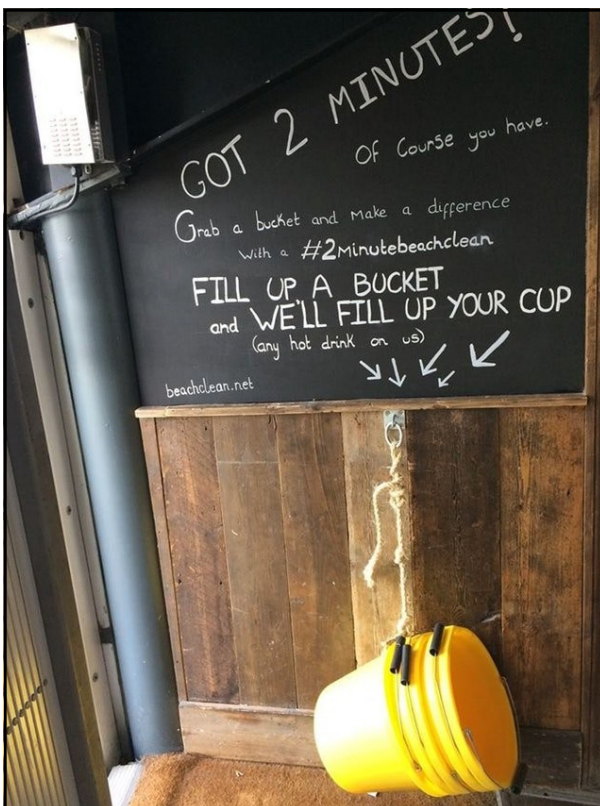 GOT 2 MINUTES!
Of Course you have.
Grab a bucket and make a difference
with a #2minutebeachclean
FILL UP A BUCKET
and WE'LL FILL UP YOUR CUP
(any hot drink on us)
beachclean.net